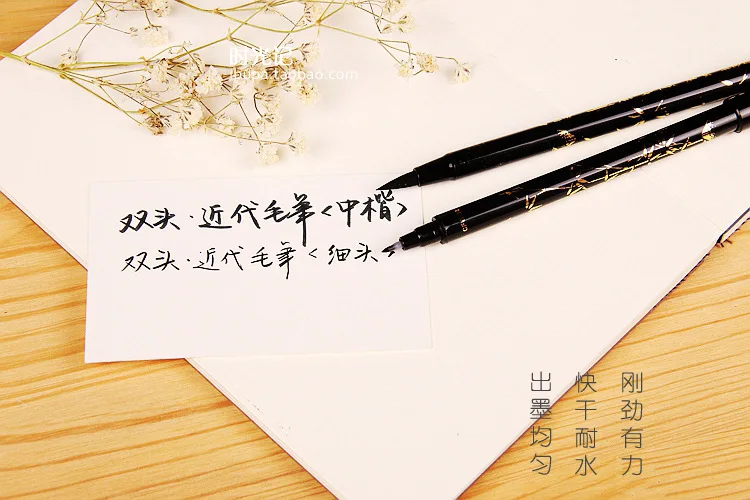 时光记
jhupa.taobao.com
双头·近代毛笔<中楷>
双头·近代毛笔<细头>
刚劲有力
快干耐水
出墨均匀